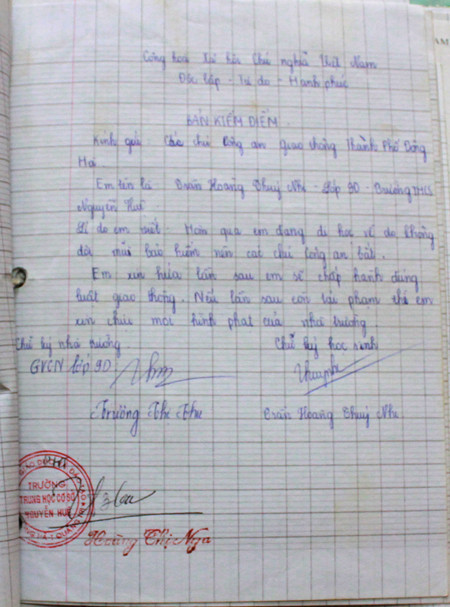 Cộng hòa Xã hội Chủ nghĩa Việt Nam
Độc lập - Tự do - Hạnh phúc
BẢN KIỂM ĐIỂM
Kính gửi: Các chú Công an giao thông Thành Phố Đông
Hà
Em tên là: Trần Hoàng Thuỳ Nhi - Lớp 9D - Trường THCS
Nguyễn Huệ
Lí do em viết: Hôm qua em đang đi học về do không
đội mũi bảo hiểm nên các chú Công an bắt.
Em xin hứa lần sau em sẽ chấp hành đúng
luật giao thông. Nếu lần sau còn tái phạm thì em
xin chịu mọi hình phạt của nhà trường
Chữ ký nhà trường
Chữ ký học sinh
GVCN lớp 9D
Trương Thị Thu
Trần Hoàng Thuỳ Nhi
TRƯỜNG
TRUNG HỌC CƠ SỞ
NGUYỄN HUỆ
Hoàng Thị Nga